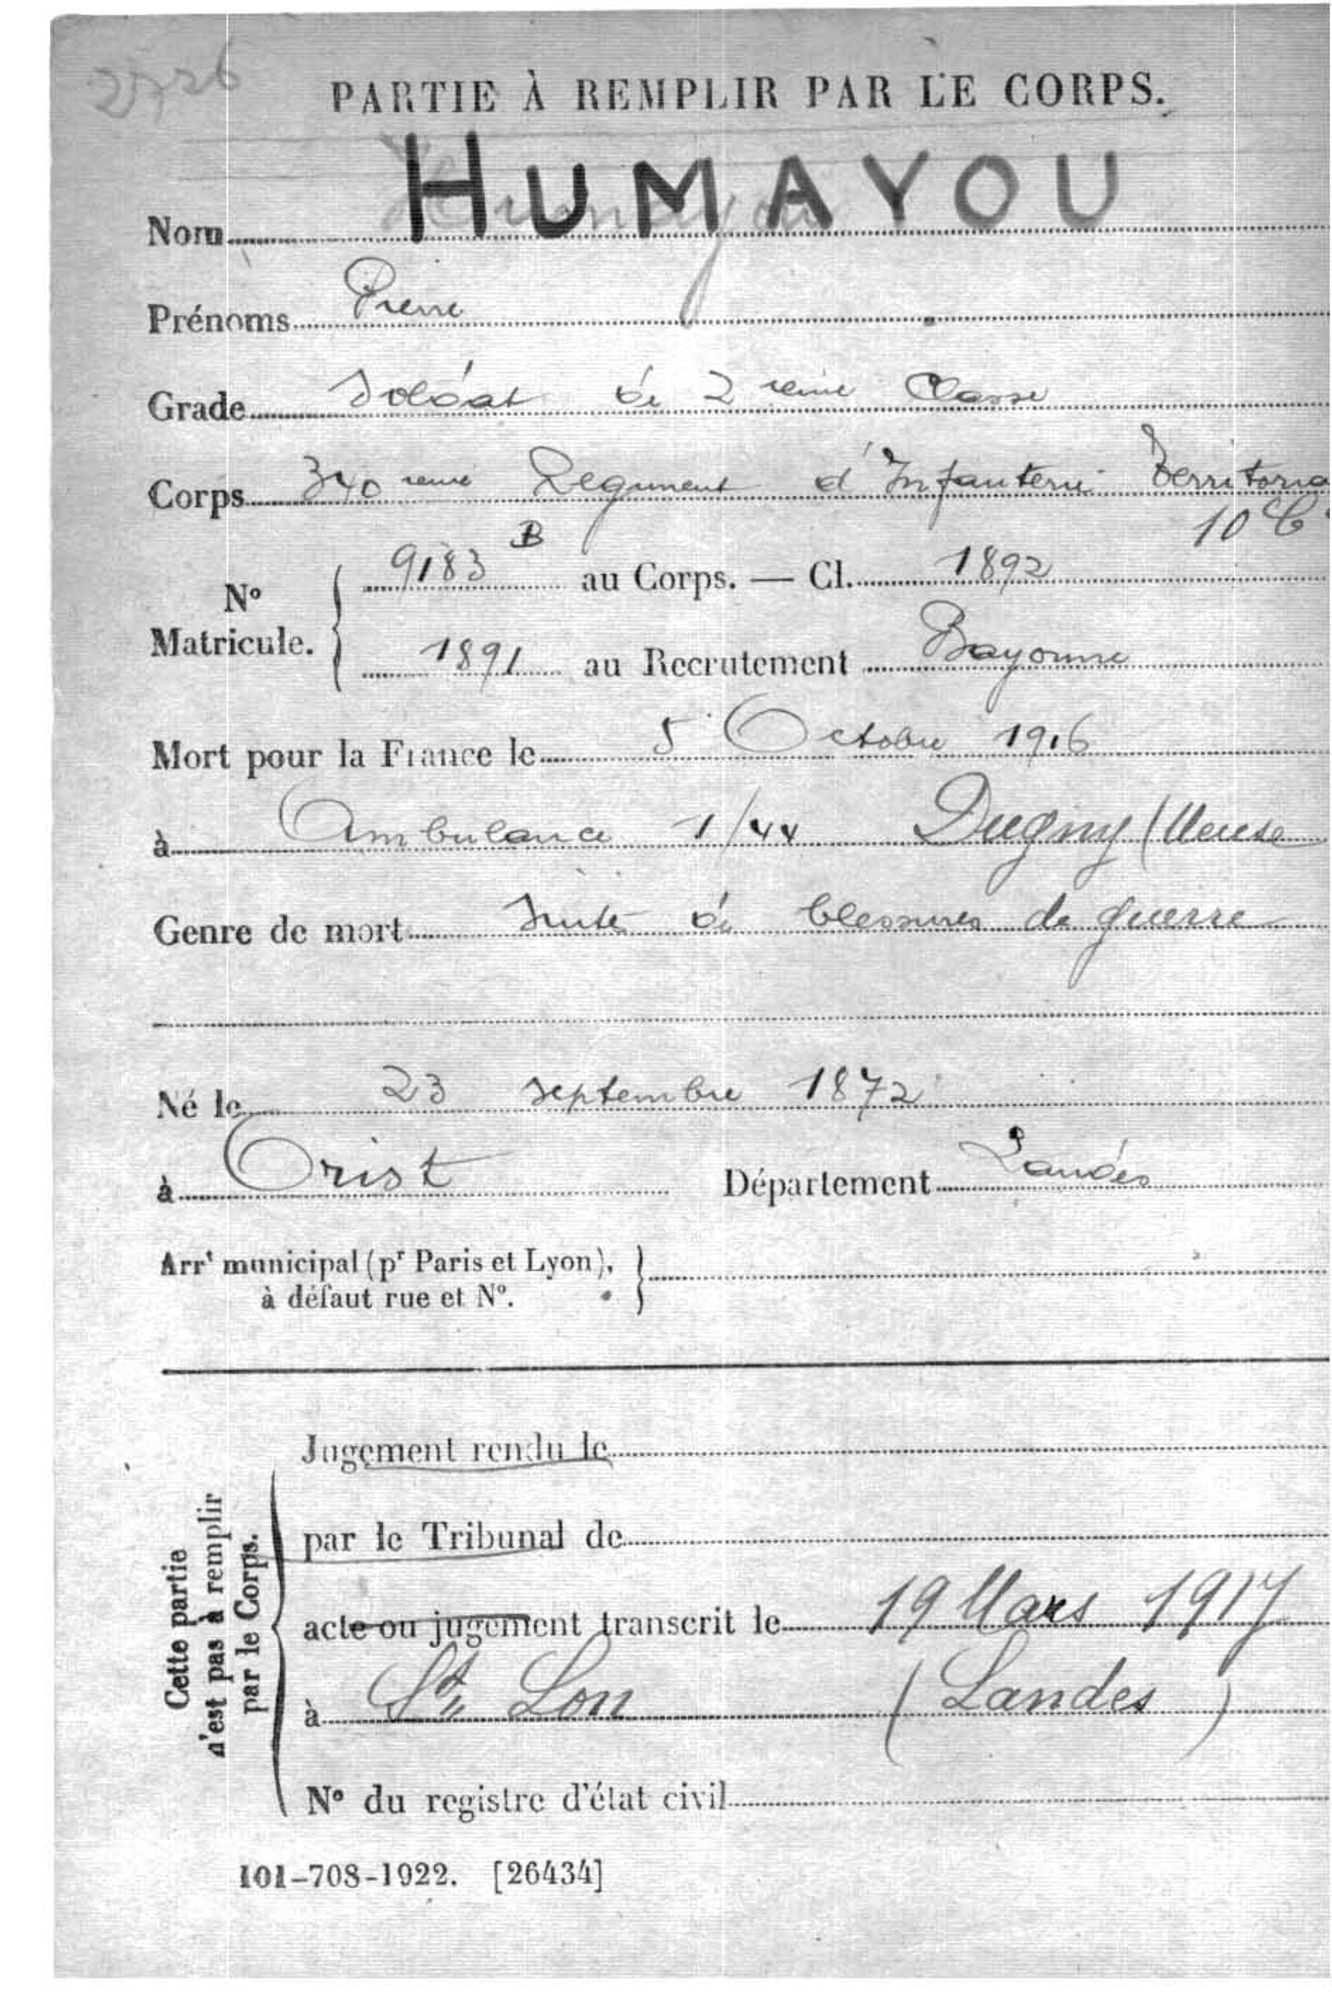 2726
PARTIE À REMPLIR PAR LE CORPS.
HUMAYOU
Nom Humayou
Prénoms Pierre
Grade Soldat de 2 ieme Classe
Corps 340 ieme Regiment d'Infanterie Territoria
10 C
N° Matricule. 9183 B au Corps. — Cl. 1892
1891 au Recrutement Bayonne
Mort pour la France le 5 Octobre 1916
à Ambulance 1/44 Dugny (Meuse
Genre de mort Suite de blessures de guerre
Né le 23 septembre 1872
à Orist Département Landes
Arrt municipal (pr Paris et Lyon),
à défaut rue et N°.
Cette partie
n'est pas à remplir
par le Corps.
Jugement rendu le
par le Tribunal de
acte ou jugement transcrit le 19 Mars 1917
à St Lon (Landes)
N° du registre d'état civil
101-708-1922. [26434]